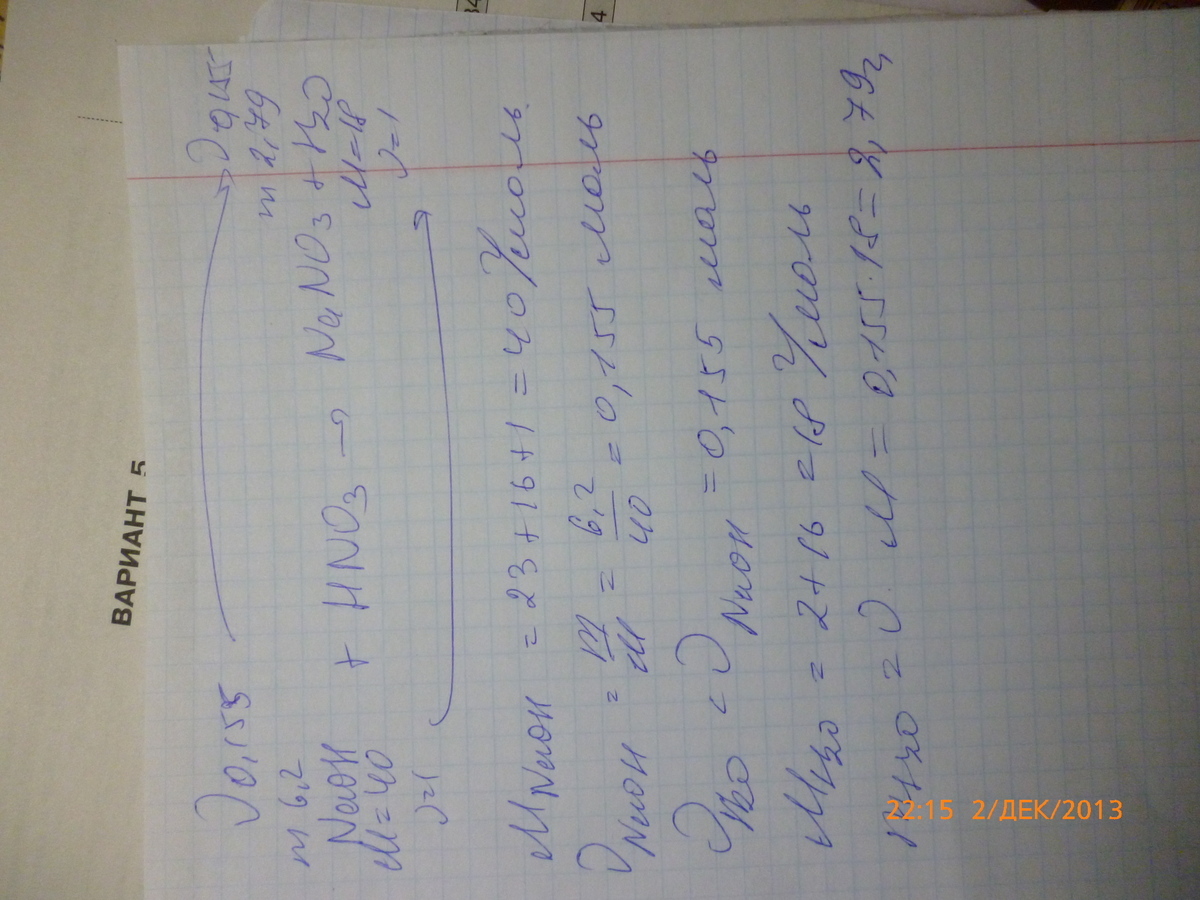 ВАРИАНТ 5
ν 0,155 ν 0,155
m 6,2 m 2,79
NaOH + HNO3 → NaNO3 + H2O
M=40 M=18
ν=1 ν=1
M NaOH = 23+16+1 = 40 г/моль
ν NaOH = m/M = 6,2/40 = 0,155 моль
ν H2O = ν NaOH = 0,155 моль
M H2O = 2+16 = 18 г/моль
m H2O = ν · M = 0,155·18 = 2,79г
34
4
22:15 2/ДЕК/2013